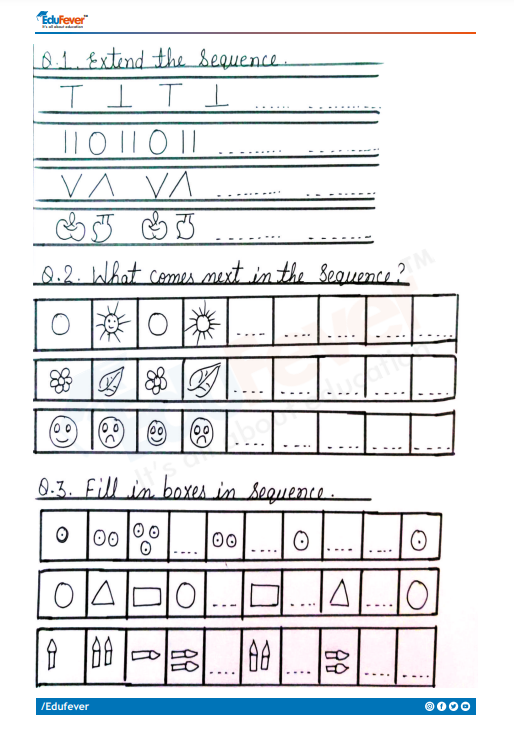 EduFever™
It's all about education
Q.1. Extend the sequence.
Q.2. What comes next in the sequence?
Q.3. Fill in boxes in sequence.
/Edufever